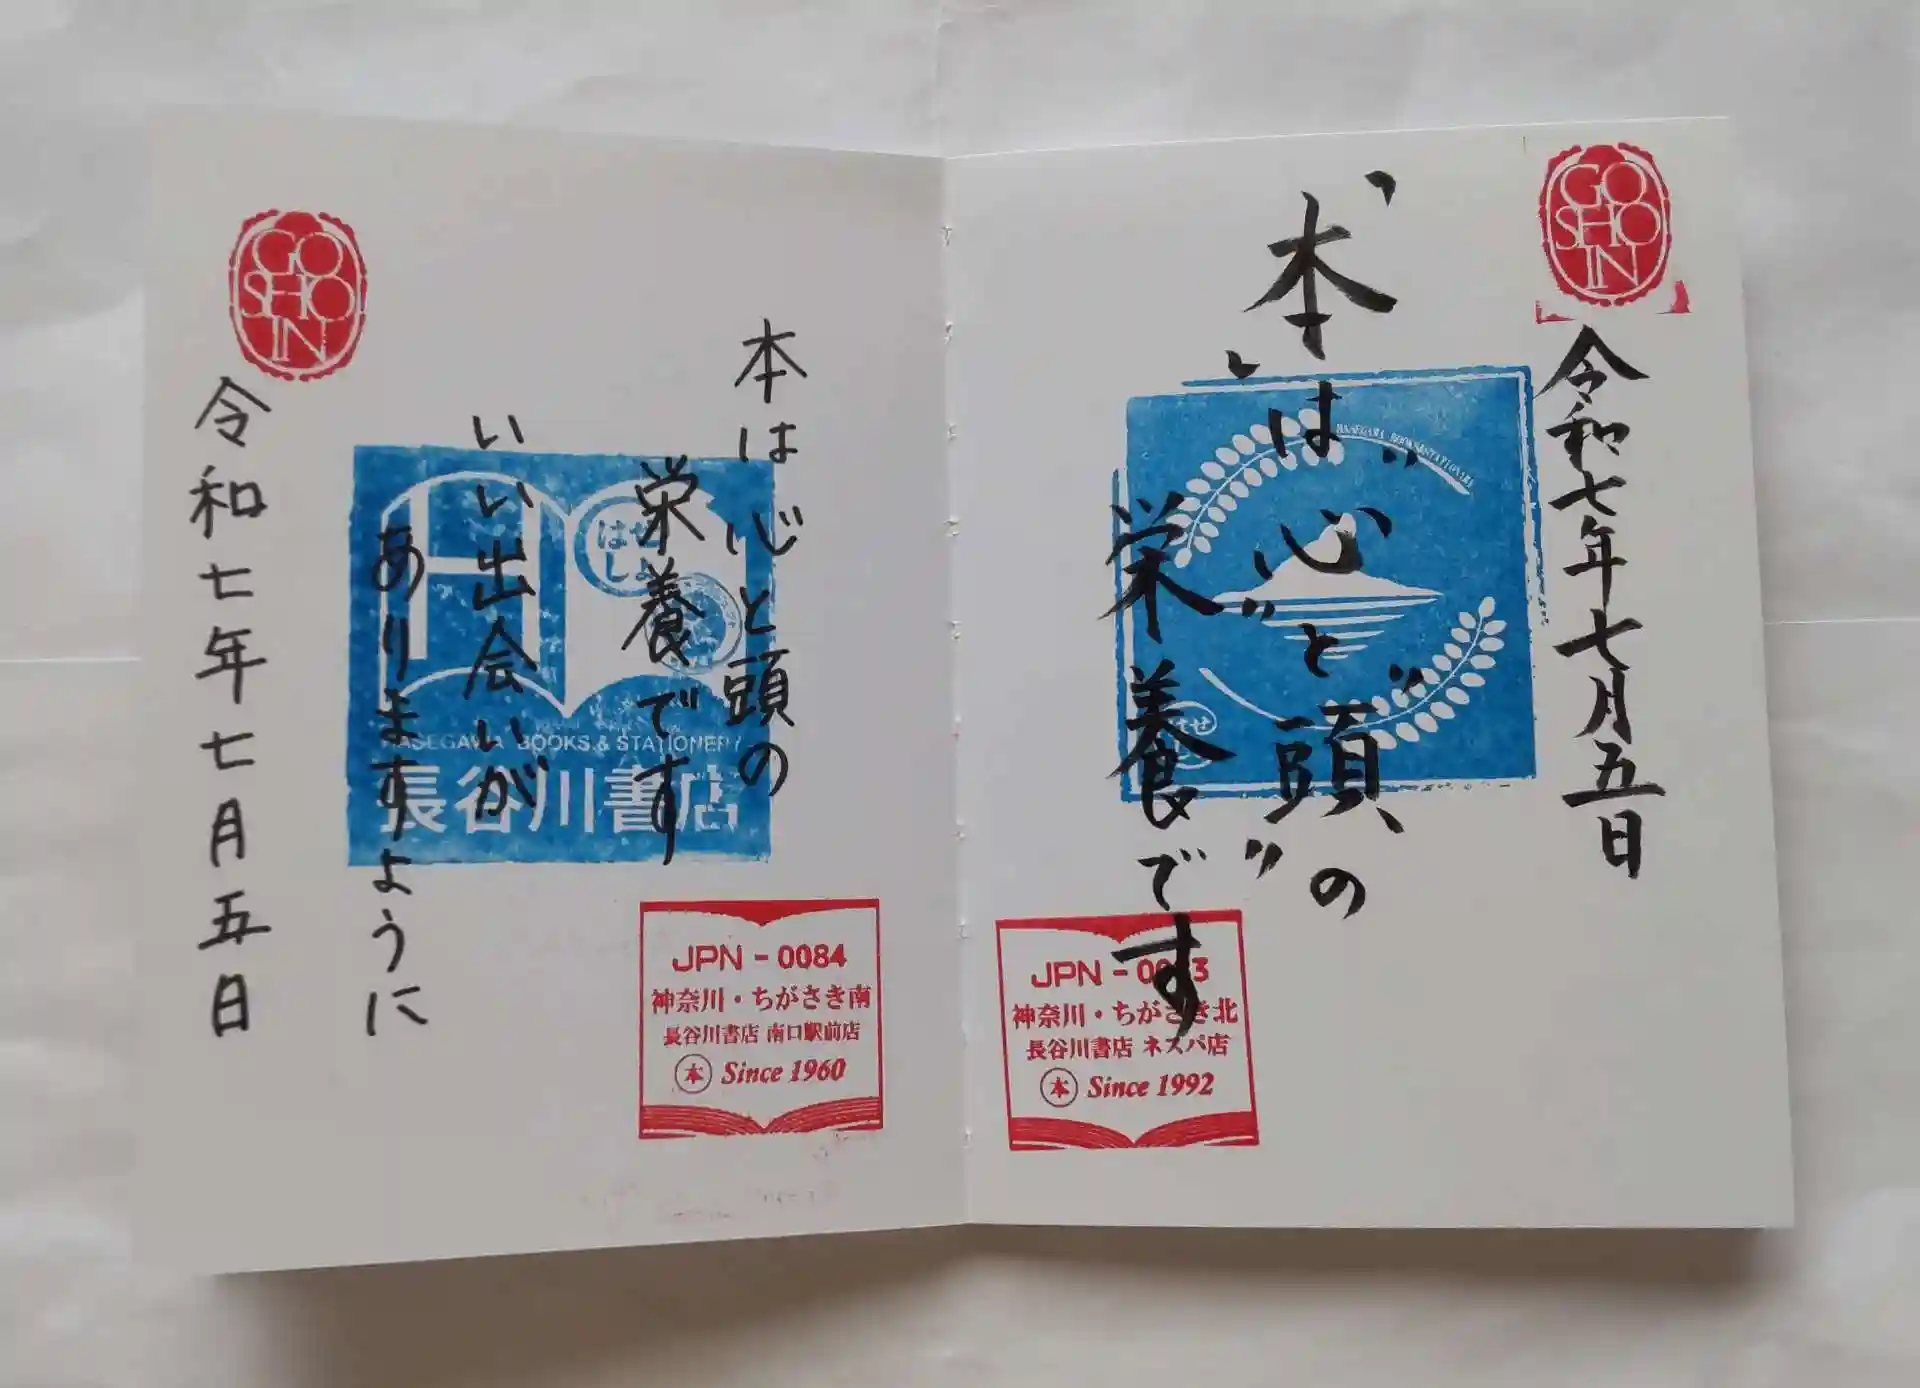 GO
SHO
IN
令和七年七月五日
本は
心と頭の
栄養です
HASEGAWA BOOKS & STATIONERY
JPN - 00
神奈川・ちがさき北
長谷川書店 ネスパ店
本 Since 1992
GO
SHO
IN
本は心と頭の
栄養です
いい出会いが
ありますように
令和七年七月五日
はせしょ
HASEGAWA BOOKS & STATIONERY
長谷川書店
JPN - 0084
神奈川・ちがさき南
長谷川書店 南口駅前店
本 Since 1960